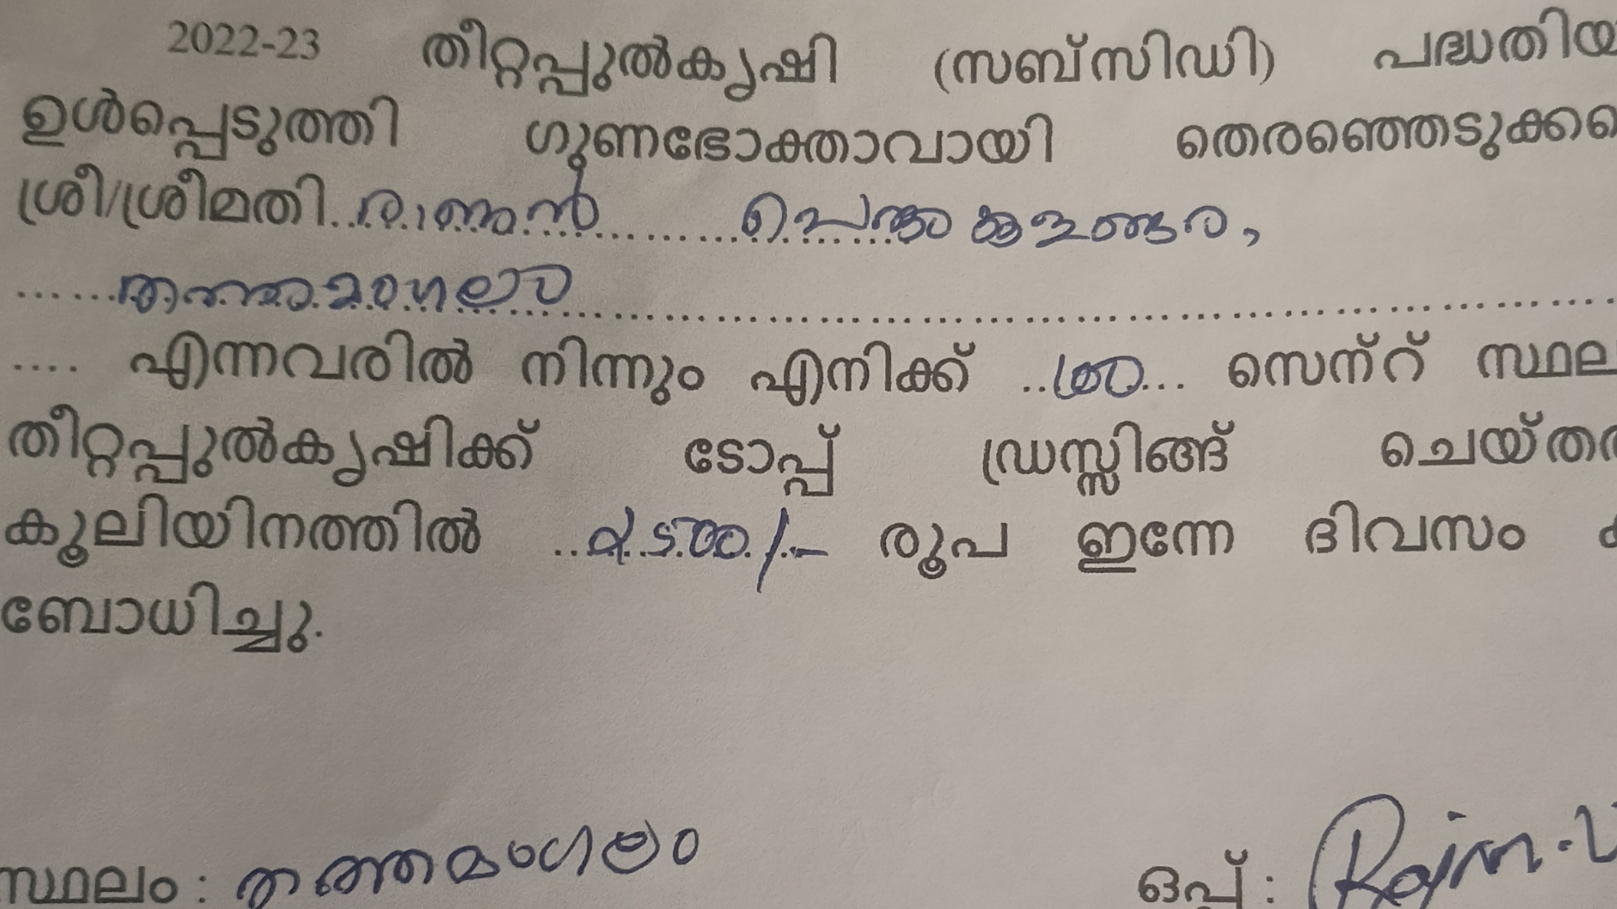 2022-23 തീറ്റപ്പുൽകൃഷി (സബ്സിഡി) പദ്ധതിയ
ഉൾപ്പെടുത്തി ഗുണഭോക്താവായി തെരഞ്ഞെടുക്ക
ശ്രീ/ശ്രീമതി..............................
...... തത്തമംഗലം ..............................
.... എന്നവരിൽ നിന്നും എനിക്ക് ..... സെന്റ് സ്ഥല
തീറ്റപ്പുൽകൃഷിക്ക് ടോപ്പ് ഡ്രസ്സിങ്ങ് ചെയ്ത
കൂലിയിനത്തിൽ ..... രൂപ ഇന്നേ ദിവസം
ബോധിച്ചു.
സ്ഥലം : തത്തമംഗലം ഒപ്പ് :